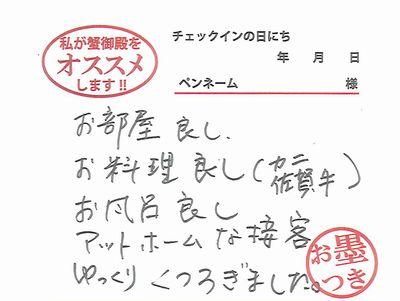 私が蟹御殿を
オススメ
します!!
チェックインの日にち
年 月 日
ペンネーム 様
お部屋良し、
お料理良し(カニ
佐賀牛)
お風呂良し
アットホームな接客
ゆっくりくつろぎました。
お墨
つき